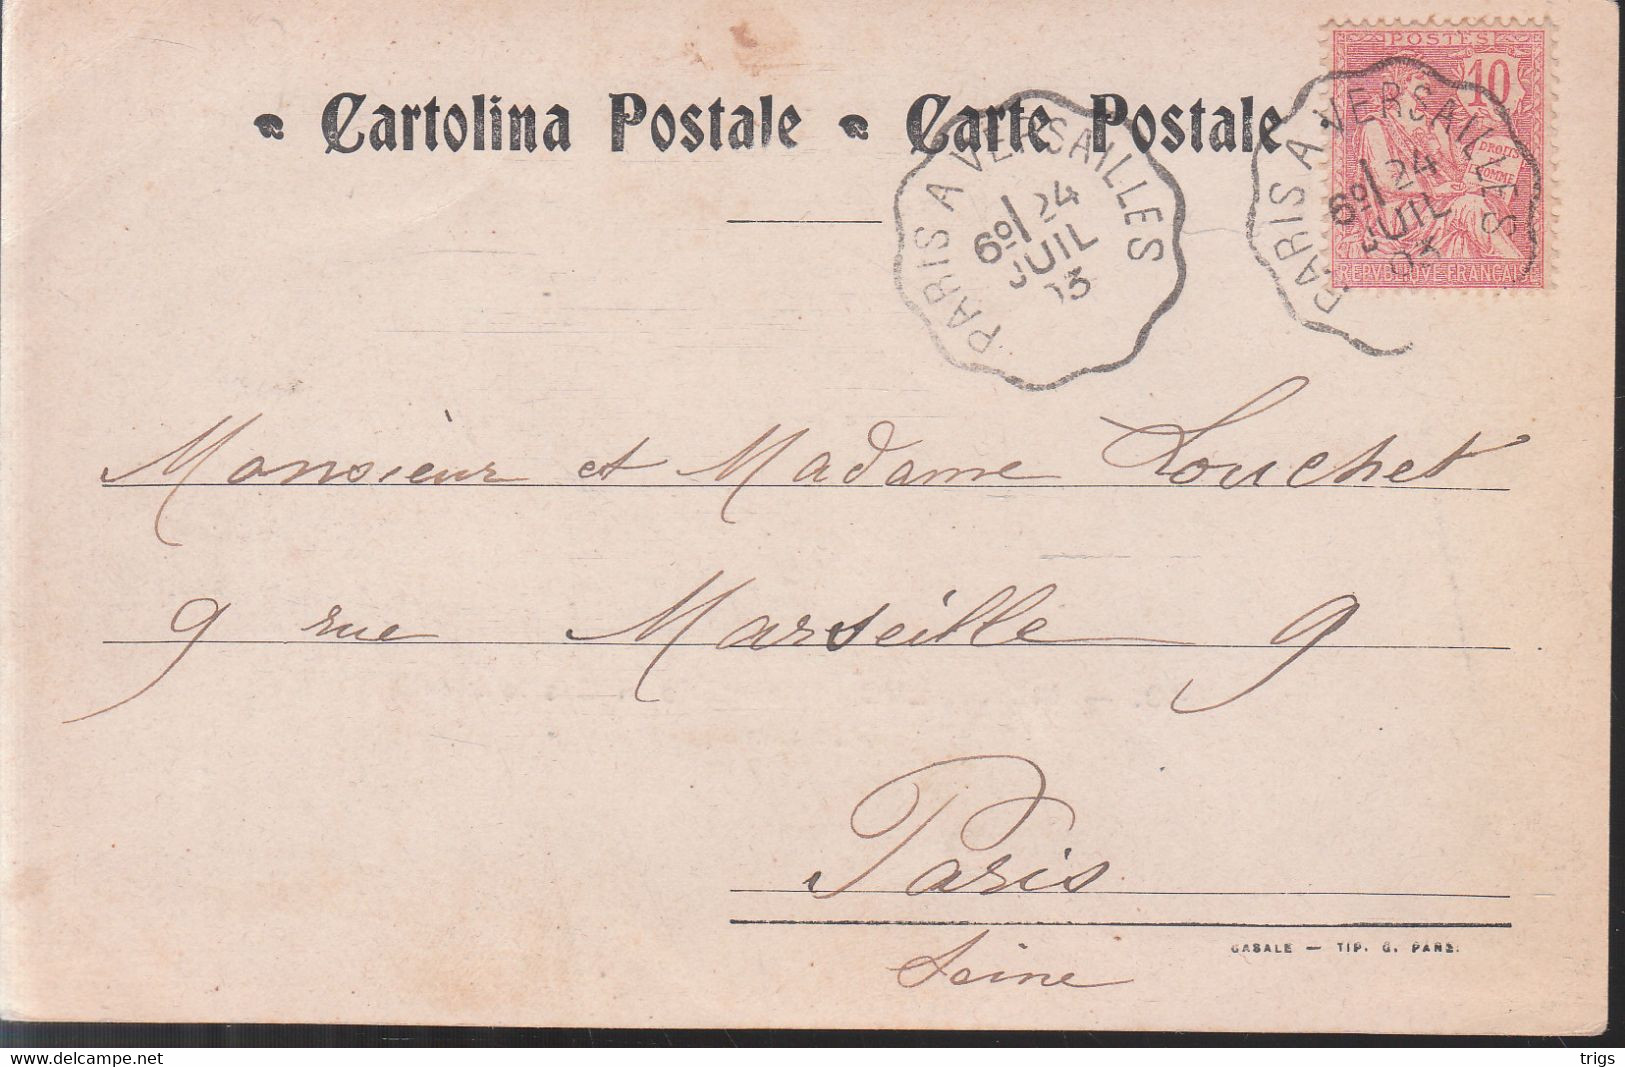 Cartolina Postale Carte Postale
POSTES
10
DROITS
HOMME
REPVBLIQVE FRANÇAISE
PARIS A VERSAILLES
6º/ 24
JUIL
03
PARIS A VERSAILLES
6º/ 24
JUIL
03
Monsieur et Madame Louchet
9 rue Marseille 9
Paris
Seine
CASALE — TIP. G. PANE.
www.delcampe.net
trigs